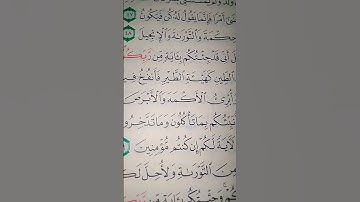 أَمْرًا فَإِنَّمَا يَقُولُ لَهُۥ كُن فَيَكُونُ ٤٧
حِكْمَةَ وَٱلتَّوْرَىٰةَ وَٱلْإِنجِيلَ ٤٨
أَنِّى قَدْ جِئْتُكُم بِـَٔايَةٍ مِّن رَّبِّكُمْ
ٱلطِّينِ كَهَيْـَٔةِ ٱلطَّيْرِ فَأَنفُخُ فِي
وَأُبْرِئُ ٱلْأَكْمَهَ وَٱلْأَبْرَصَ
نَبِّئُكُم بِمَا تَأْكُلُونَ وَمَا تَدَّخِرُو
لَـَٔايَةً لَّكُمْ إِن كُنتُم مُّؤْمِنِينَ
مِنَ ٱلتَّوْرَىٰةِ وَلِأُحِلَّ لَكُ
كُمْ وَجِئْتُكُم بِـَٔايَةٍ مِّن